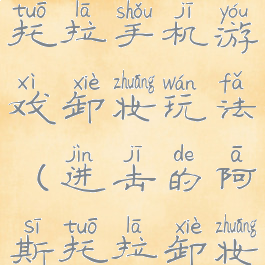 tuō lā shǒu jī yóu
托拉手机游
xì xiè zhuāng wán fǎ
戏卸妆玩法
jìn jī de ā
(进击的阿
sī tuō lā xiè zhuāng
斯托拉卸妆